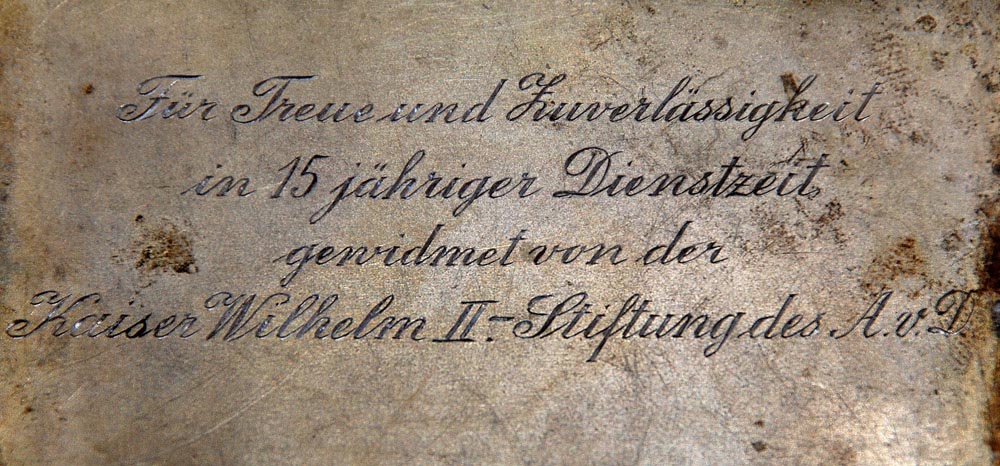 Für Treue und Zuverlässigkeit
in 15 jähriger Dienstzeit
gewidmet von der
Kaiser Wilhelm II.-Stiftung des A.v.D